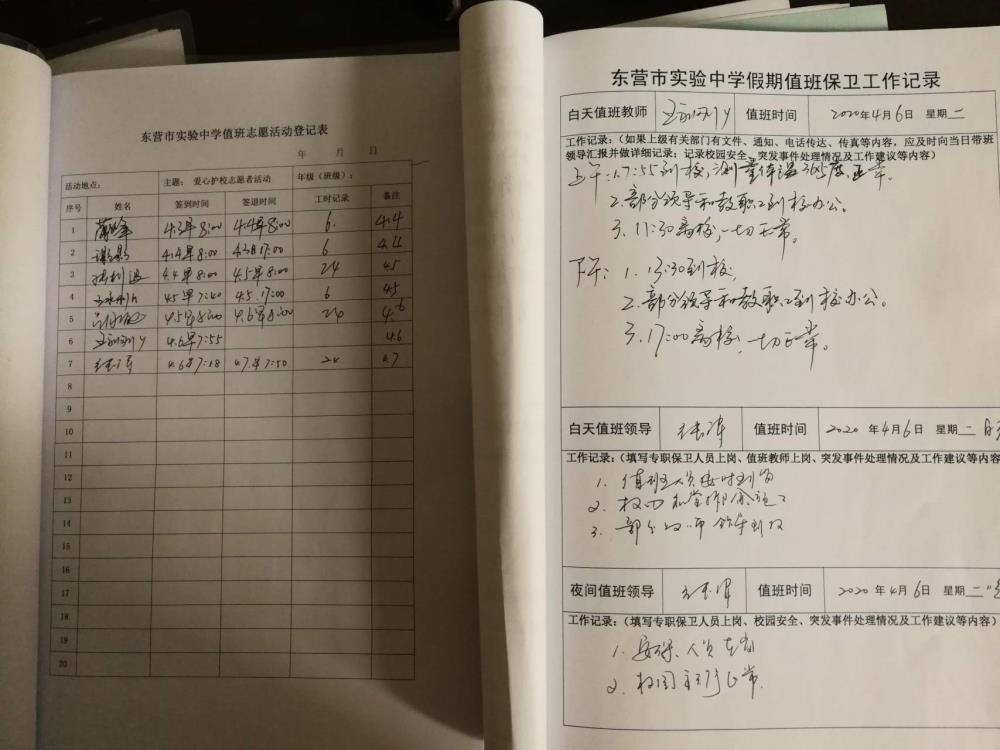 东营市实验中学值班志愿活动登记表
年 月 日
活动地点： 主题： 爱心护校志愿者活动 年级（班级）：
序号 姓名 签到时间 签退时间 工时记录 备注
1 4.3早8:00 4.4早8:00 6. 4.4
2 4.4早8:00 17:00 6
3 4.4早8:00 4.5早8:00 24 4.5
4 4.5早7:40 4.5.17:00 6 4.5
5 4.5早8:00 4.6早8:00 24 4.6
6 4.6早7:55 4.6
7 4.6早7:58 4.7早7:50 24 4.7
8
9
10
11
12
13
14
15
16
17
18
19
20
东营市实验中学假期值班保卫工作记录
白天值班教师 值班时间 2020年4月6日 星期二
工作记录：（如果上级有关部门有文件、通知、电话传达、传真等内容，应及时向当日带班
领导汇报并做详细记录；记录校园安全、突发事件处理情况及工作建议等内容）
上午：1.7:55到校，测量体温36.5度，正常。
2.部分领导和教职工到校办公。
3.11:30离校，一切正常。
下午：1.13:30到校，
2.部分领导和教职工到校办公。
3.17:00离校，一切正常。
白天值班领导 值班时间 2020年4月6日 星期二
工作记录：（填写专职保卫人员上岗、值班教师上岗、突发事件处理情况及工作建议等内容
1. 值班人员按时到岗
2.
3. 部分教师 到校
夜间值班领导 值班时间 2020年4月6日 星期二
工作记录：（填写专职保卫人员上岗、校园安全、突发事件处理情况及工作建议等内容）
1. 安保人员在岗
2. 校园 正常.